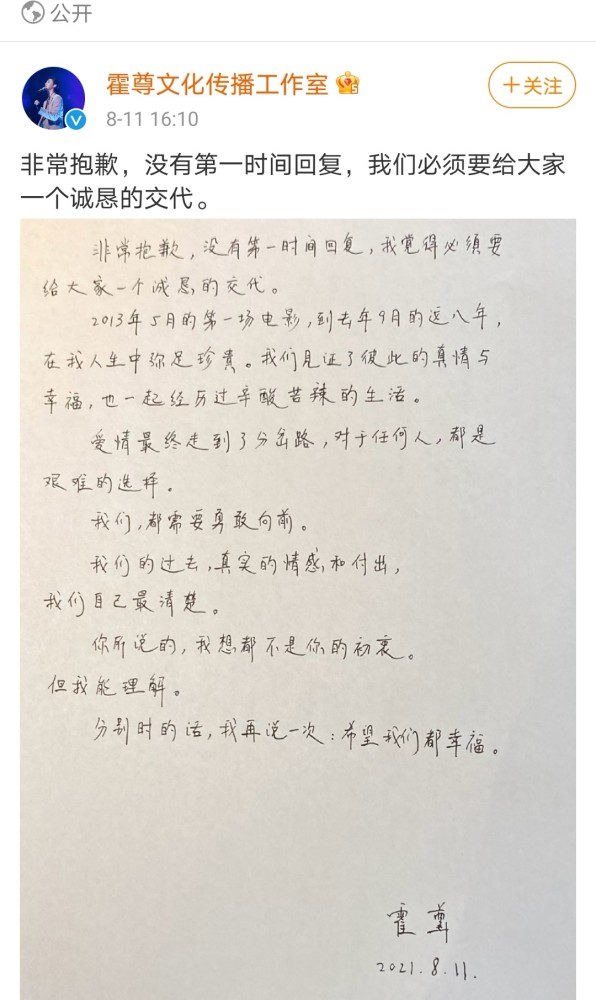 公开
霍尊文化传播工作室
+关注
8-11 16:10
非常抱歉，没有第一时间回复，我们必须要给大家
一个诚恳的交代。
非常抱歉，没有第一时间回复，我觉得必须要
给大家一个诚恳的交代。
2013年5月的第一场电影，到去年9月的这八年，
在我人生中弥足珍贵。我们见证了彼此的真情与
幸福，也一起经历过辛酸苦辣的生活。
爱情最终走到了分岔路，对于任何人，都是
艰难的选择。
我们，都需要勇敢向前。
我们的过去，真实的情感和付出，
我们自己最清楚。
你所说的，我想都不是你的初衷。
但我能理解。
分别时的话，我再说一次：希望我们都幸福。
霍尊
2021.8.11.